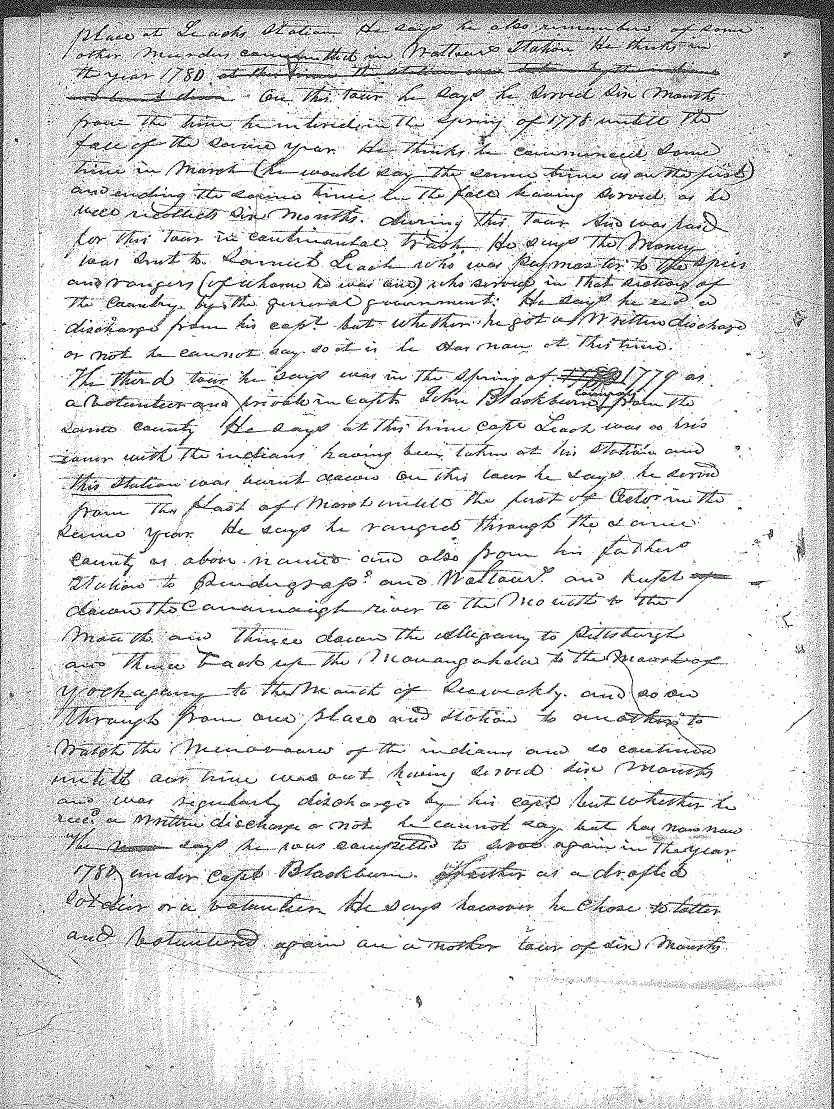 place at Leachs Station He says he also remembers of some
other Murders committed in Wallours Station He thinks in
the year 1780 at this time the station was taken by the indians
and burnt down On this tour he says he served six Months
from the time he entered in the spring of 1778 untill the
fall of the same year. He thinks he commenced some
time in March (he would say the same time as on the first)
and ending the same time in the fall having served as he
well recollects six Months. during this tour And was paid
for this tour in continental trash He says the Money
was sent to Samuel Leach who was paymaster to the spies
and rangers (of whome he was one) who served in that section of
the Country by the general government. He says he recd a
discharge from his capt but whether he got a Written discharge
or not he cannot say so it is he has none at this time.
The third tour he says was in the spring of 1779 as
a volunteer and private in capt John Blackburns company from the
same county He says at this time capt Leach was a pris
=oner with the indians having been taken at his station and
this station was burnt down On this tour he says he served
from the last of March untill the first of Octor in the
same year. He says he ranged through the same
county as above named and also from his fathers
Station to Pendergrass and Wallours and kept up
down the Cavanaugh river to the Mouth to the
Mouth and thence down the Allegany to Pittsburgh
and thence back up the Monongahala to the Mouth of
Yochagany to the Mouth of Seweakly. and so on
through from one place and station to another to
Watch the Menovours of the indians and so continued
untill our time was out having served six Months
and was regularly discharged by his capt but whether he
recd a Written discharge or not he cannot say but has now now
He says he was compelled to serve again in the year
1780 under capt Blackburn. Either as a drafted
soldier or a volunteer He says however he chose to latter
and volunteered again on a nother tour of six Months